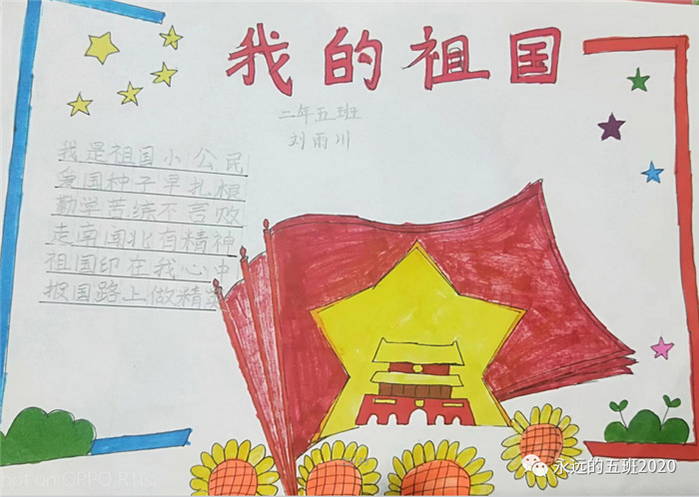 我的祖国
二年五班
刘雨川
我是祖国小公民
爱国种子早扎根
勤学苦练不言败
走南闯北有精神
祖国印在我心中
报国路上做精英
永远的五班2020